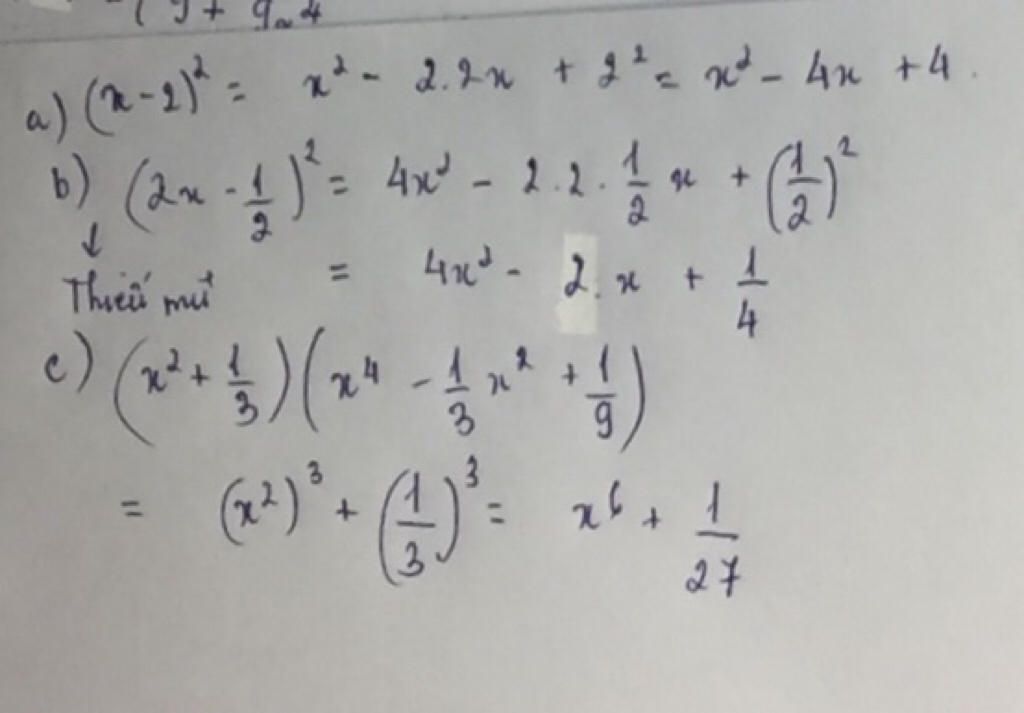 a) (x - 2)² = x² - 2.2x + 2² = x² - 4x + 4.
b) (2x - 1/2)² = 4x² - 2.2.1/2 x + (1/2)²
↓
Thiếu mũ = 4x² - 2.x + 1/4
c) (x² + 1/3)(x⁴ - 1/3 x² + 1/9)
= (x²)³ + (1/3)³ = x⁶ + 1/27